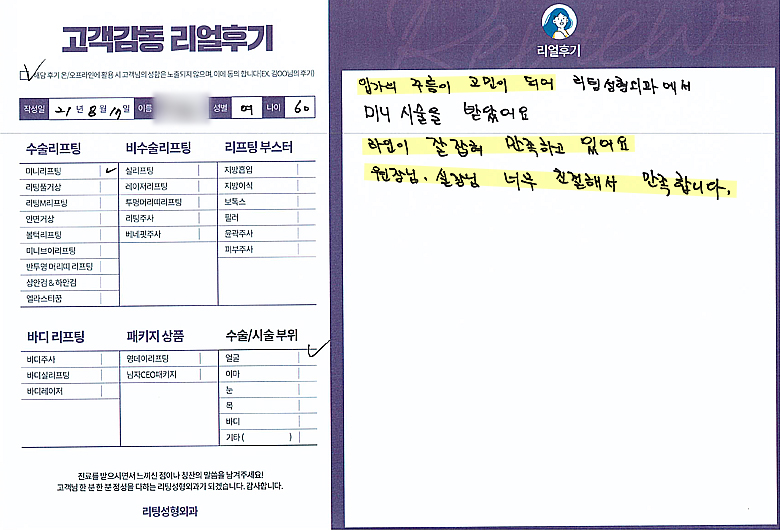 고객감동 리얼후기
해당 후기 온/오프라인에 활용 시 고객님의 성함은 노출되지 않으며, 이에 동의 합니다(EX. 김OO님의 후기)
작성일 21년 8월 19일 이름 성별 여 나이 60
수술리프팅
미니리프팅
리팅풀거상
리팅M리프팅
안면거상
볼턱리프팅
미니브이리프팅
반투명 머리띠 리프팅
상안검 & 하안검
엘라스티꿈
비수술리프팅
실리프팅
레이저리프팅
투명머리띠리프팅
리팅주사
베네핏주사
리프팅 부스터
지방흡입
지방이식
보톡스
필러
윤곽주사
피부주사
바디 리프팅
바디주사
바디실리프팅
바디레이저
패키지 상품
영데이리프팅
남자CEO패키지
수술/시술 부위
얼굴
이마
눈
목
바디
기타 ( )
진료를 받으시면서 느끼신 점이나 칭찬의 말씀을 남겨주세요!
고객님 한 분 한 분 정성을 다하는 리팅성형외과가 되겠습니다. 감사합니다.
리팅성형외과
Review
리얼후기
입가의 주름이 고민이 되어 리팅성형외과에서
미니 시술을 받았어요
라인이 잘 잡혀 만족하고 있어요
원장님, 실장님 너무 친절해서 만족합니다.